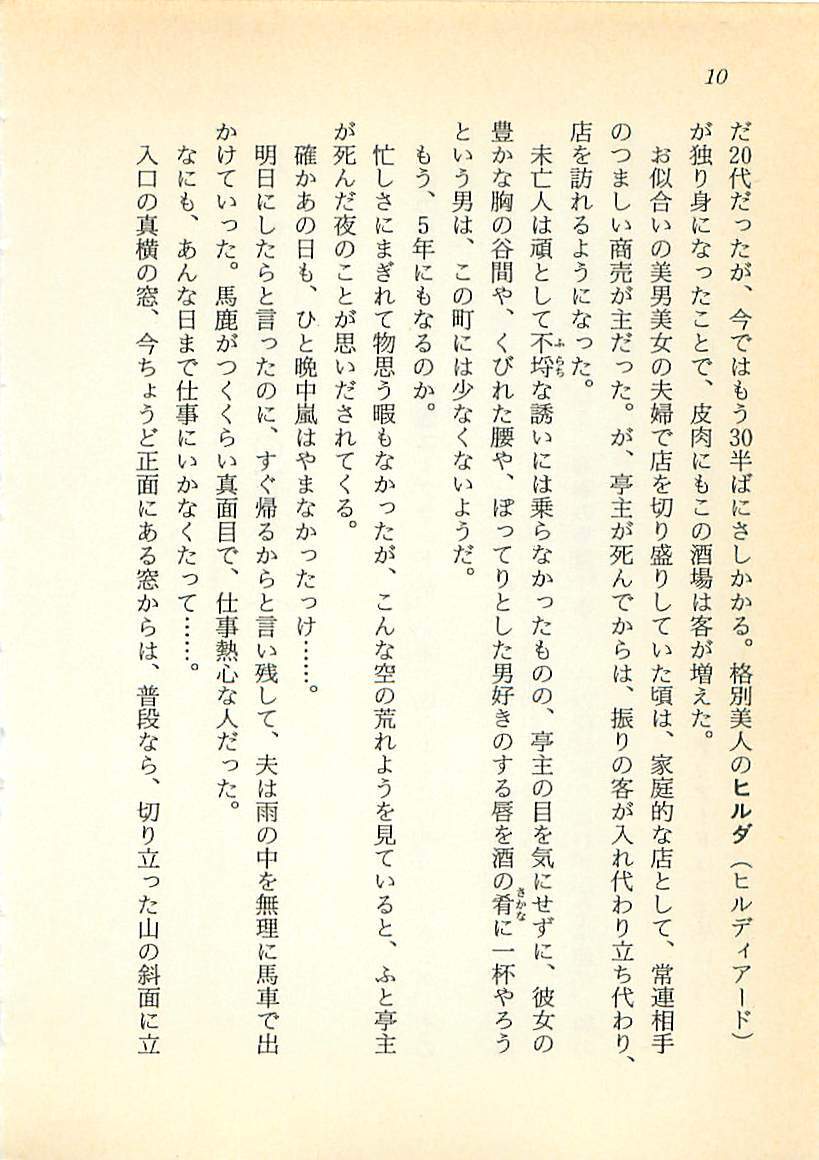 10
だ20代だったが、今ではもう30半ばにさしかかる。格別美人のヒルダ（ヒルディアード）
が独り身になったことで、皮肉にもこの酒場は客が増えた。
お似合いの美男美女の夫婦で店を切り盛りしていた頃は、家庭的な店として、常連相手
のつましい商売が主だった。が、亭主が死んでからは、振りの客が入れ代わり立ち代わり、
店を訪れるようになった。
未亡人は頑として不埒な誘いには乗らなかったものの、亭主の目を気にせずに、彼女の
ふらち
豊かな胸の谷間や、くびれた腰や、ぽってりとした男好きのする唇を酒の肴に一杯やろう
さかな
という男は、この町には少なくないようだ。
もう、5年にもなるのか。
忙しさにまぎれて物思う暇もなかったが、こんな空の荒れようを見ていると、ふと亭主
が死んだ夜のことが思いだされてくる。
確かあの日も、ひと晩中嵐はやまなかったっけ……。
明日にしたらと言ったのに、すぐ帰るからと言い残して、夫は雨の中を無理に馬車で出
かけていった。馬鹿がつくくらい真面目で、仕事熱心な人だった。
なにも、あんな日まで仕事にいかなくたって……。
入口の真横の窓、今ちょうど正面にある窓からは、普段なら、切り立った山の斜面に立